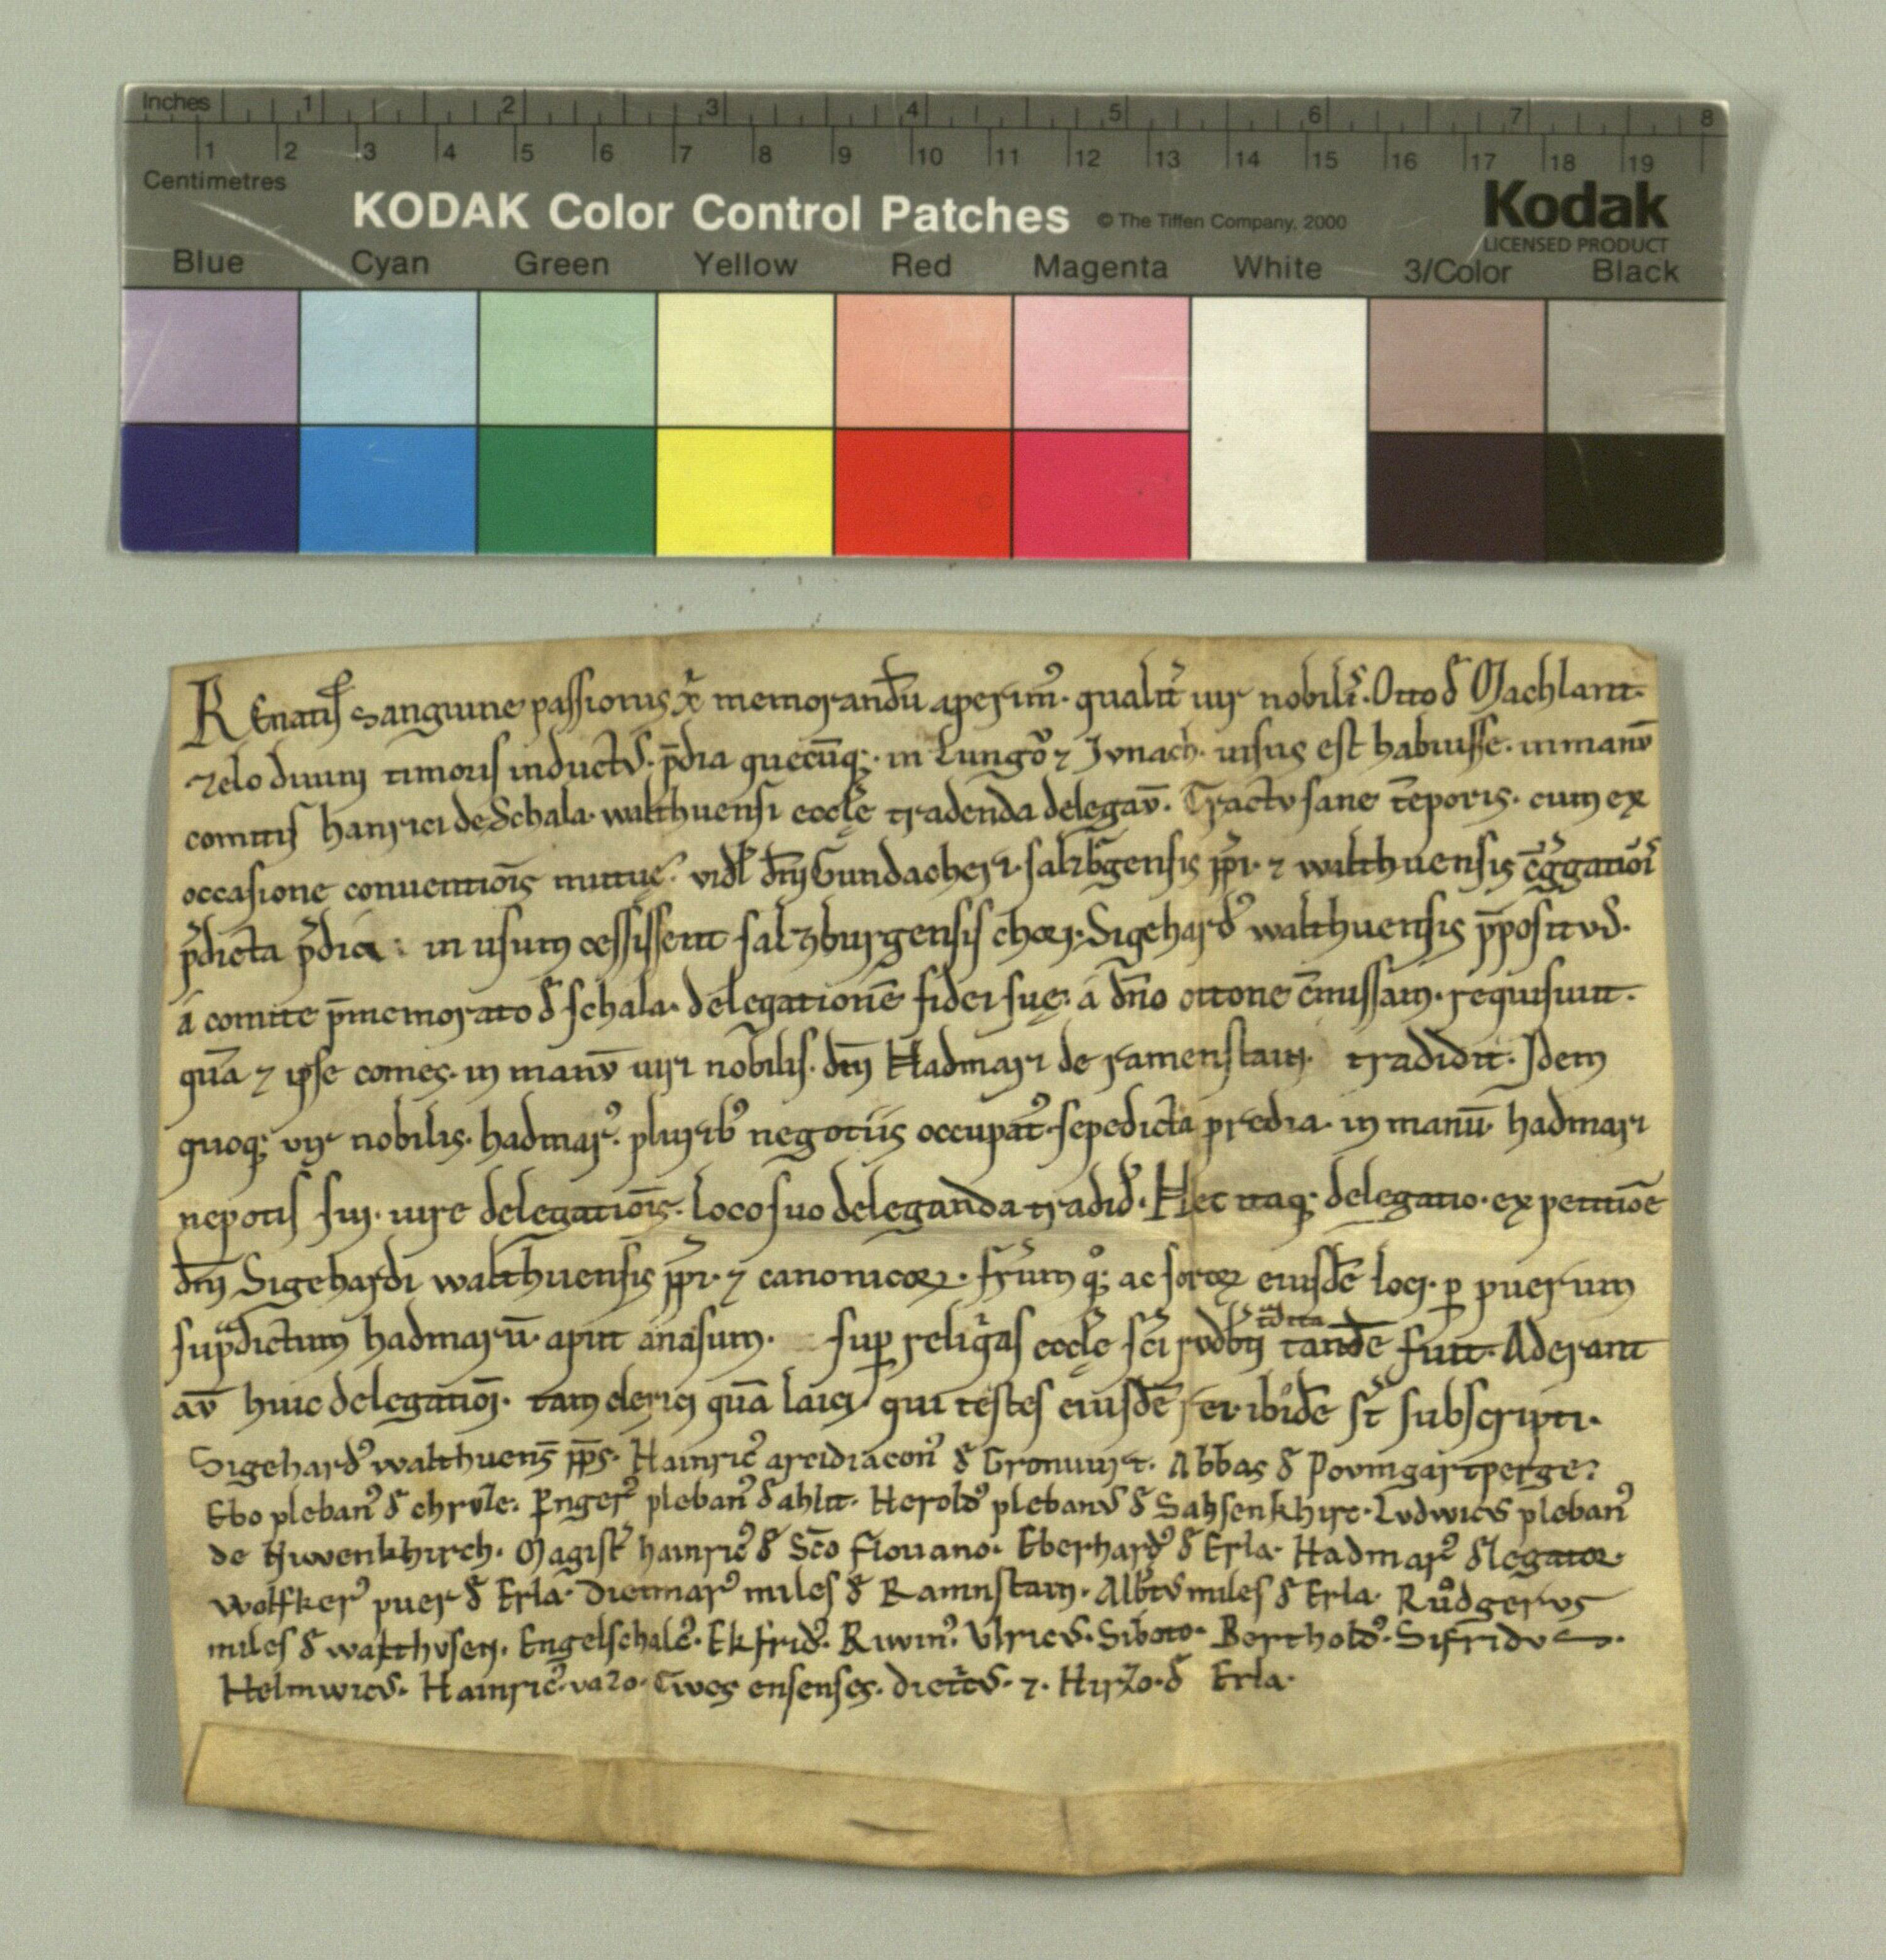 Inches 1 2 3 4 5 6 7 8
1 2 3 4 5 6 7 8 9 10 11 12 13 14 15 16 17 18 19
Centimetres
KODAK Color Control Patches © The Tiffen Company, 2000 Kodak
LICENSED PRODUCT
Blue Cyan Green Yellow Red Magenta White 3/Color Black
REnatis sanguine passionis xp̄i memorandū aperim᷒. qualit̄ uir nobilis̄. Otto đ Machlant.
zelo diuini timoris inductꝰ. p̄dia quecūq;. in Lungoͮ ⁊ Jvnach. uisus est habuisse. in manv̄
comitis hanrici de Schala. walthuensi eccle᷒ tradenda delegav̄. Tractv sane tēporis. cum ex
occasione conuentiōis mutuę. vidl̓ dn̄i Gundacheri. salzb̄gensis p̄pi. ⁊ walthuensis c̄g̓gatiōi᷒
p̓dicta p̓dia. in usum cessissent salzburgensis choꝝ. Sigehardꝰ walthuensis p̄positvꝰ.
a comite p̄memorato đ schala. delegationē fidei suę. á dn̄o ottone c̄missam. requisiuit.
quā ⁊ ipse comes. in manv̄ uiri nobilis. dn̄i Hadmari de ramenstain. tradidit. Idem
quoq; vir nobilis. hadmarꝰ. plurib᷒ negotiis occupatꝰ. sepedicta predia. in manū hadmari
nepotis sui. iure delegatiōis. loco suo deleganda tradid᷒. Hec itaq; delegatio. ex petitiōe
dn̄i Sigehardi walthuensis p̄pi. ⁊ canonicoꝝ. fr̄um qͦ; ac soroꝝ eiusdē loci. ꝑ puerum
sup̃dictum hadmarū. aput anasum. suꝑ reliq̓as eccle᷒ sc̄i rvdb̓ti tādē fc̄ita fuit. Aderant
av̄ huic delegatiōi. tam clerici quā laici qui testes eiusdē rei. ibidē st̄ subscripti.
Sigehardꝰ walthuens̄ p̄ps. Hainricꝰ arcidiaconꝰ đ Gronuuirt. Abbas đ Povmgartperge.
Ebo plebanꝰ đ chrvͦle. P̄ngerꝰ plebanꝰ đ ahlit. Heroldꝰ plebanꝰ đ Sahsenkhirc. Lvdwicꝰ plebanꝰ
de Niwenkhirch. Magist̓ hainricꝰ đ Sc̄o floriano. Eberhardꝰ đ Erla. Hadmarꝰ đlegatoꝛ.
wolfkerꝰ puer đ Erla. Dietmarꝰ miles đ Ramnstain. Alb̓tvꝰ miles đ Erla. Ruͦdgerus
miles đ walthvsen. Engelschalcꝰ. Ekfridꝰ. Riwinꝰ. Vlricꝰ. Siboto. Bertholdꝰ. Sifridvs.
Helmwicꝰ. Hainricꝰ. vazo. Cives ensenses. diet̓cꝰ. ⁊. Hirzo. đ Erla.